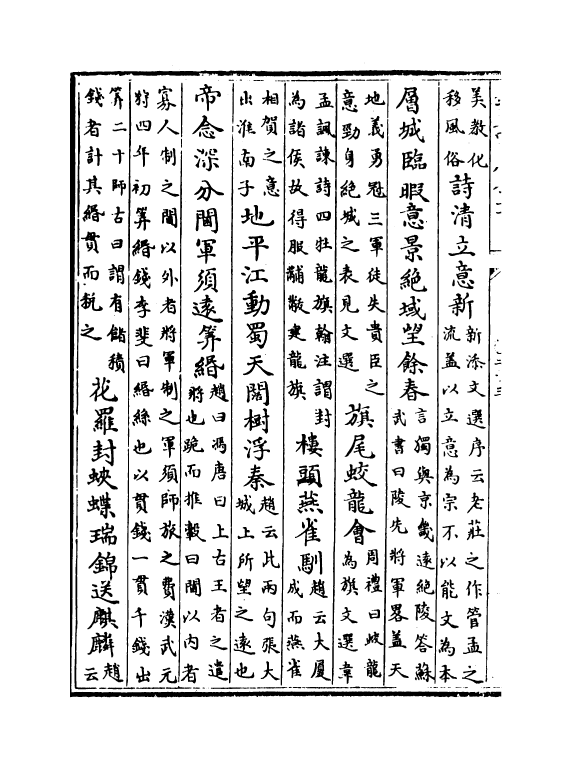 美教化移風俗詩清立意新新添文選序云老莊之作管孟之流盖以立意為宗不以能文為本
層城臨暇意景絶域望餘春言獨與京畿遠絶陵答蘇武書曰陵先將軍畧盖天
地義勇冠三軍徒失貴臣之意勁身絶城之表見文選旗尾蛟龍會周禮曰蛟龍為旗文選韋
孟諷諫詩四牡龍旗翰注謂封為諸侯故得服黼黻建龍旗樓頭燕雀馴趙云大厦成而燕雀
相賀之意出淮南子地平江動蜀天闊樹浮秦趙云此兩句張大城上所望之遠也
帝念深分閫軍須遠筭緡趙曰馮唐曰上古王者之遣將也跪而推轂曰閫以内者
寡人制之閫以外者將軍制之軍須師旅之費漢武元狩四年初筭緡錢李斐曰緡絲也以貫錢一貫千錢出
筭二十師古曰謂有儲積錢者計其緡貫而税之花羅封蛺蝶瑞錦送麒麟趙云